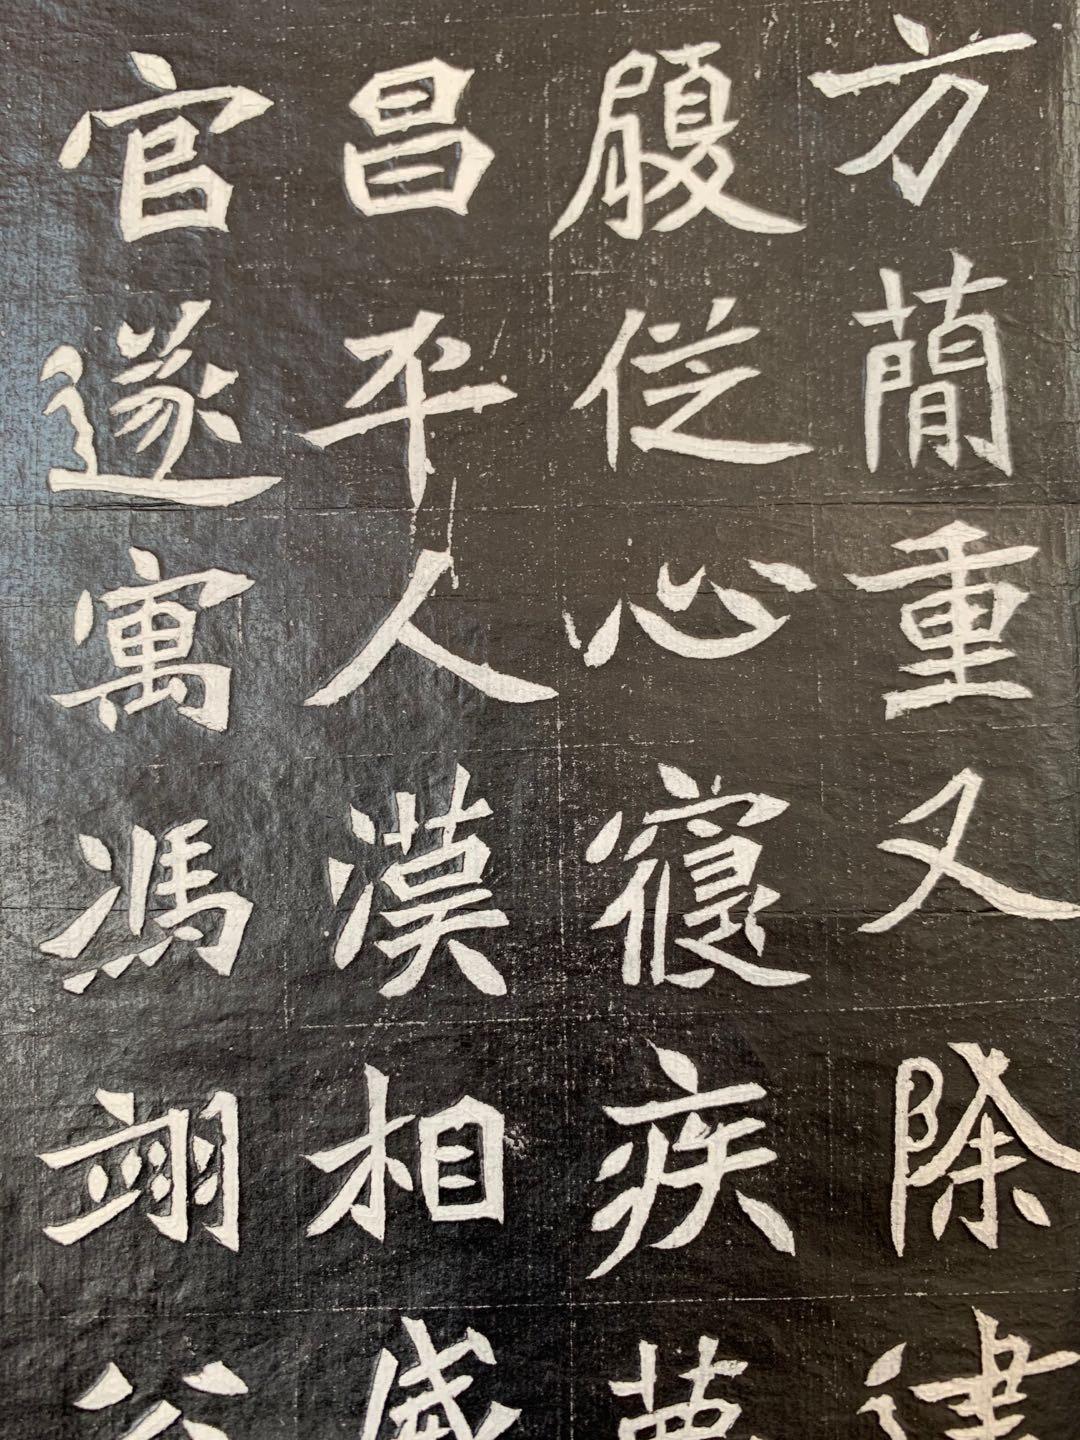 方蕳重又除
履從心寢疾
昌平人漢相
官遂寓馮翊